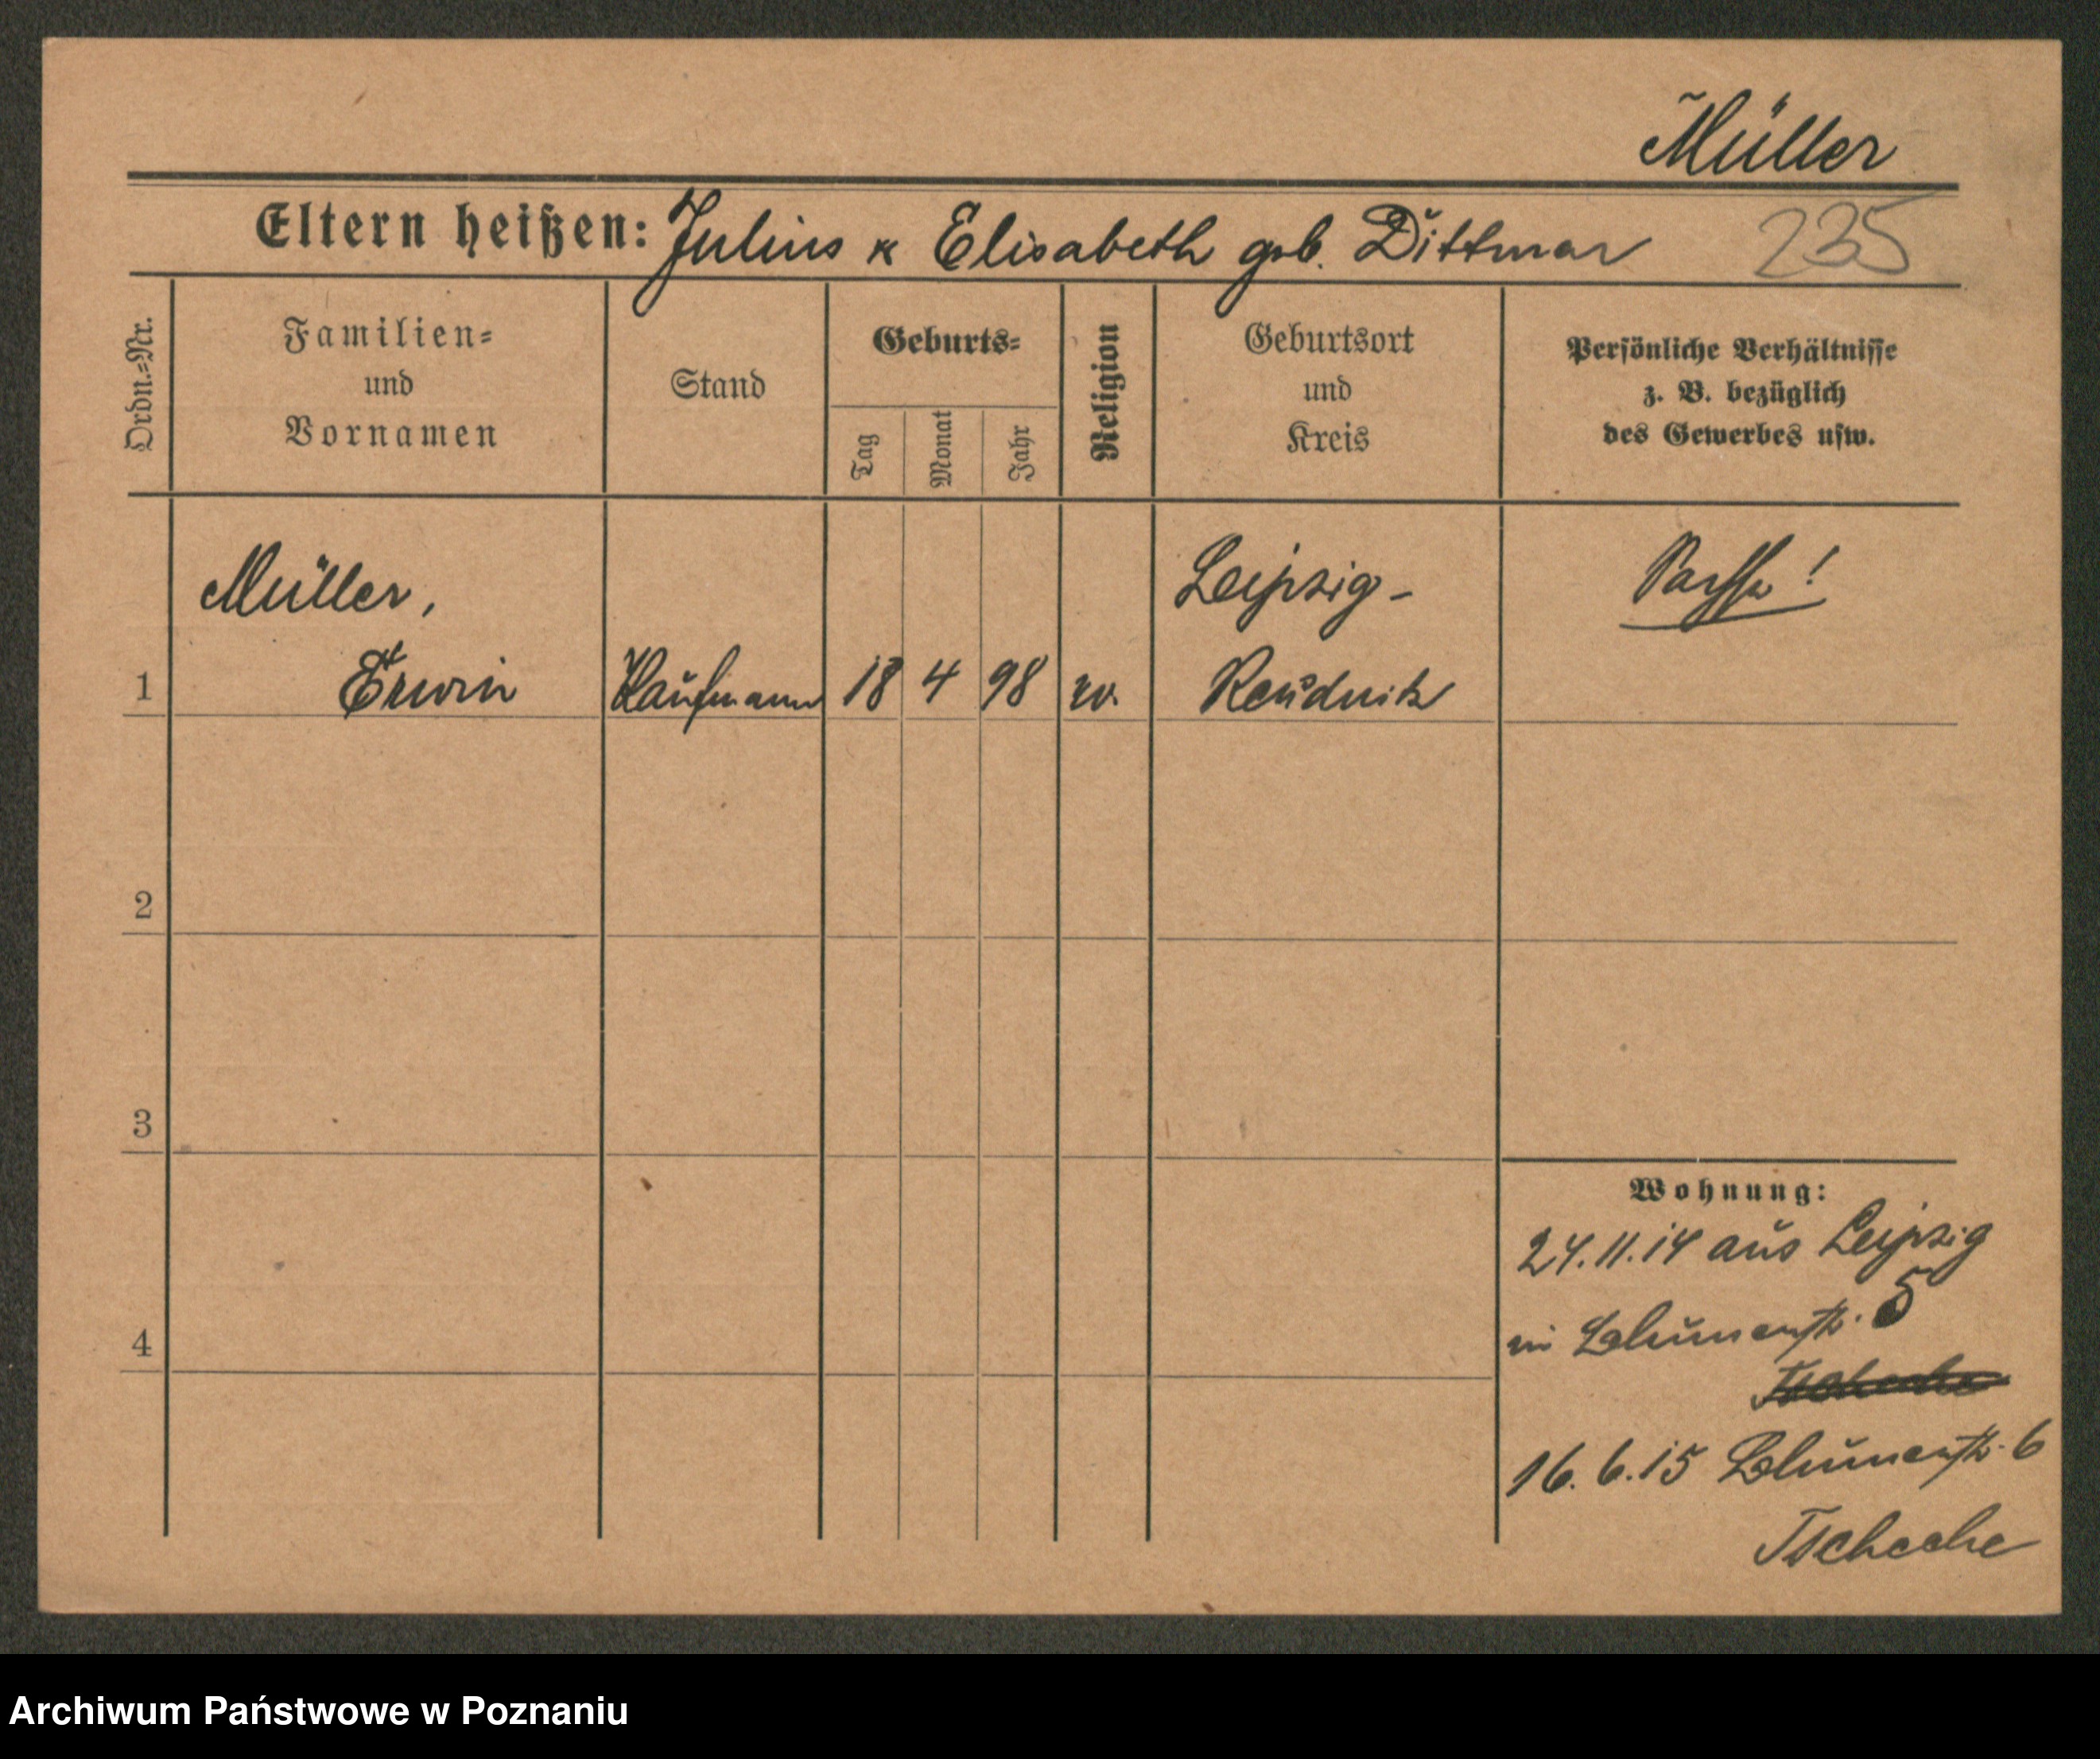 Müller
Eltern heißen: Julius & Elisabeth geb. Dittmar 235
Ordn.-Nr.
Familien-
und
Vornamen
Stand
Geburts-
Tag
Monat
Jahr
Religion
Geburtsort
und
Kreis
Persönliche Verhältnisse
z. B. bezüglich
des Gewerbes usw.
Müller, Leipzig- Sachse!
1 Erwin Kaufmann 18 4 98 ev. Reudnitz
2
3
Wohnung:
24.11.14 aus Leipzig
in Blumenstr. 5
4
Tscheche
16.6.15 Blumenstr. 6
Tscheche
Archiwum Państwowe w Poznaniu